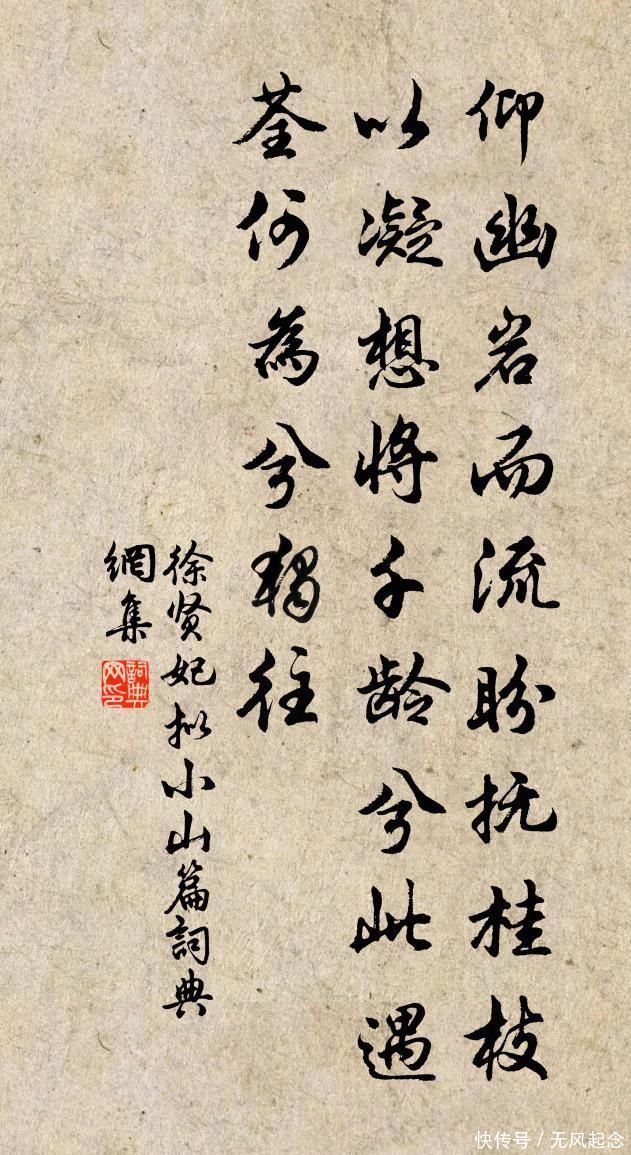 仰幽岩而流盼抚桂枝
以凝想将千龄兮此遇
荃何為兮独往
徐贤妃拟小山篇詞典
網集
詞典网印
快传号/无风起念